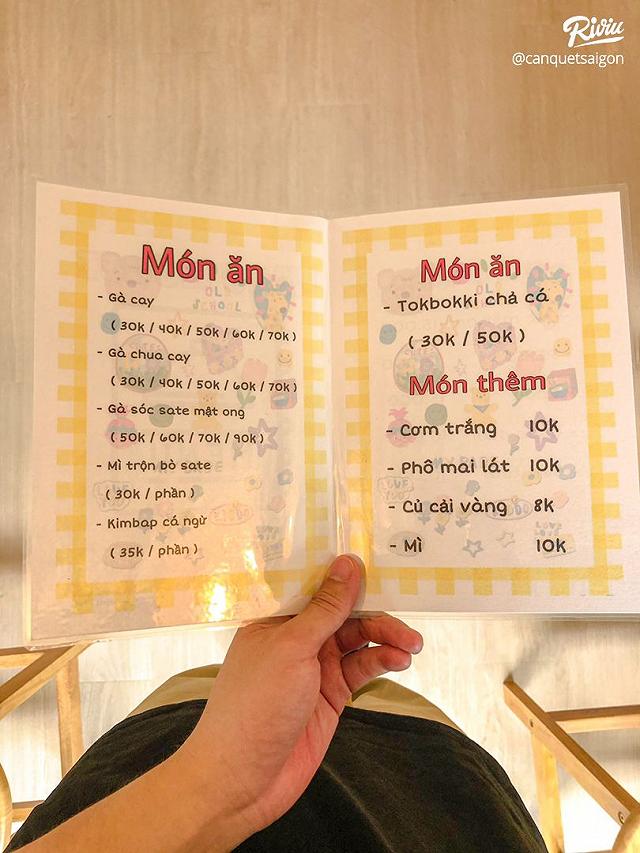 Riviu
@canquetsaigon
Món ăn
- Gà cay
( 30k / 40k / 50k / 60k / 70k )
- Gà chua cay
( 30k / 40k / 50k / 60k / 70k )
- Gà sóc sate mật ong
( 50k / 60k / 70k / 90k )
- Mì trộn bò sate
( 30k / phần )
- Kimbap cá ngừ
( 35k / phần )
Món ăn
- Tokbokki chả cá
( 30k / 50k )
Món thêm
- Cơm trắng 10k
- Phô mai lát 10k
- Củ cải vàng 8k
- Mì 10k